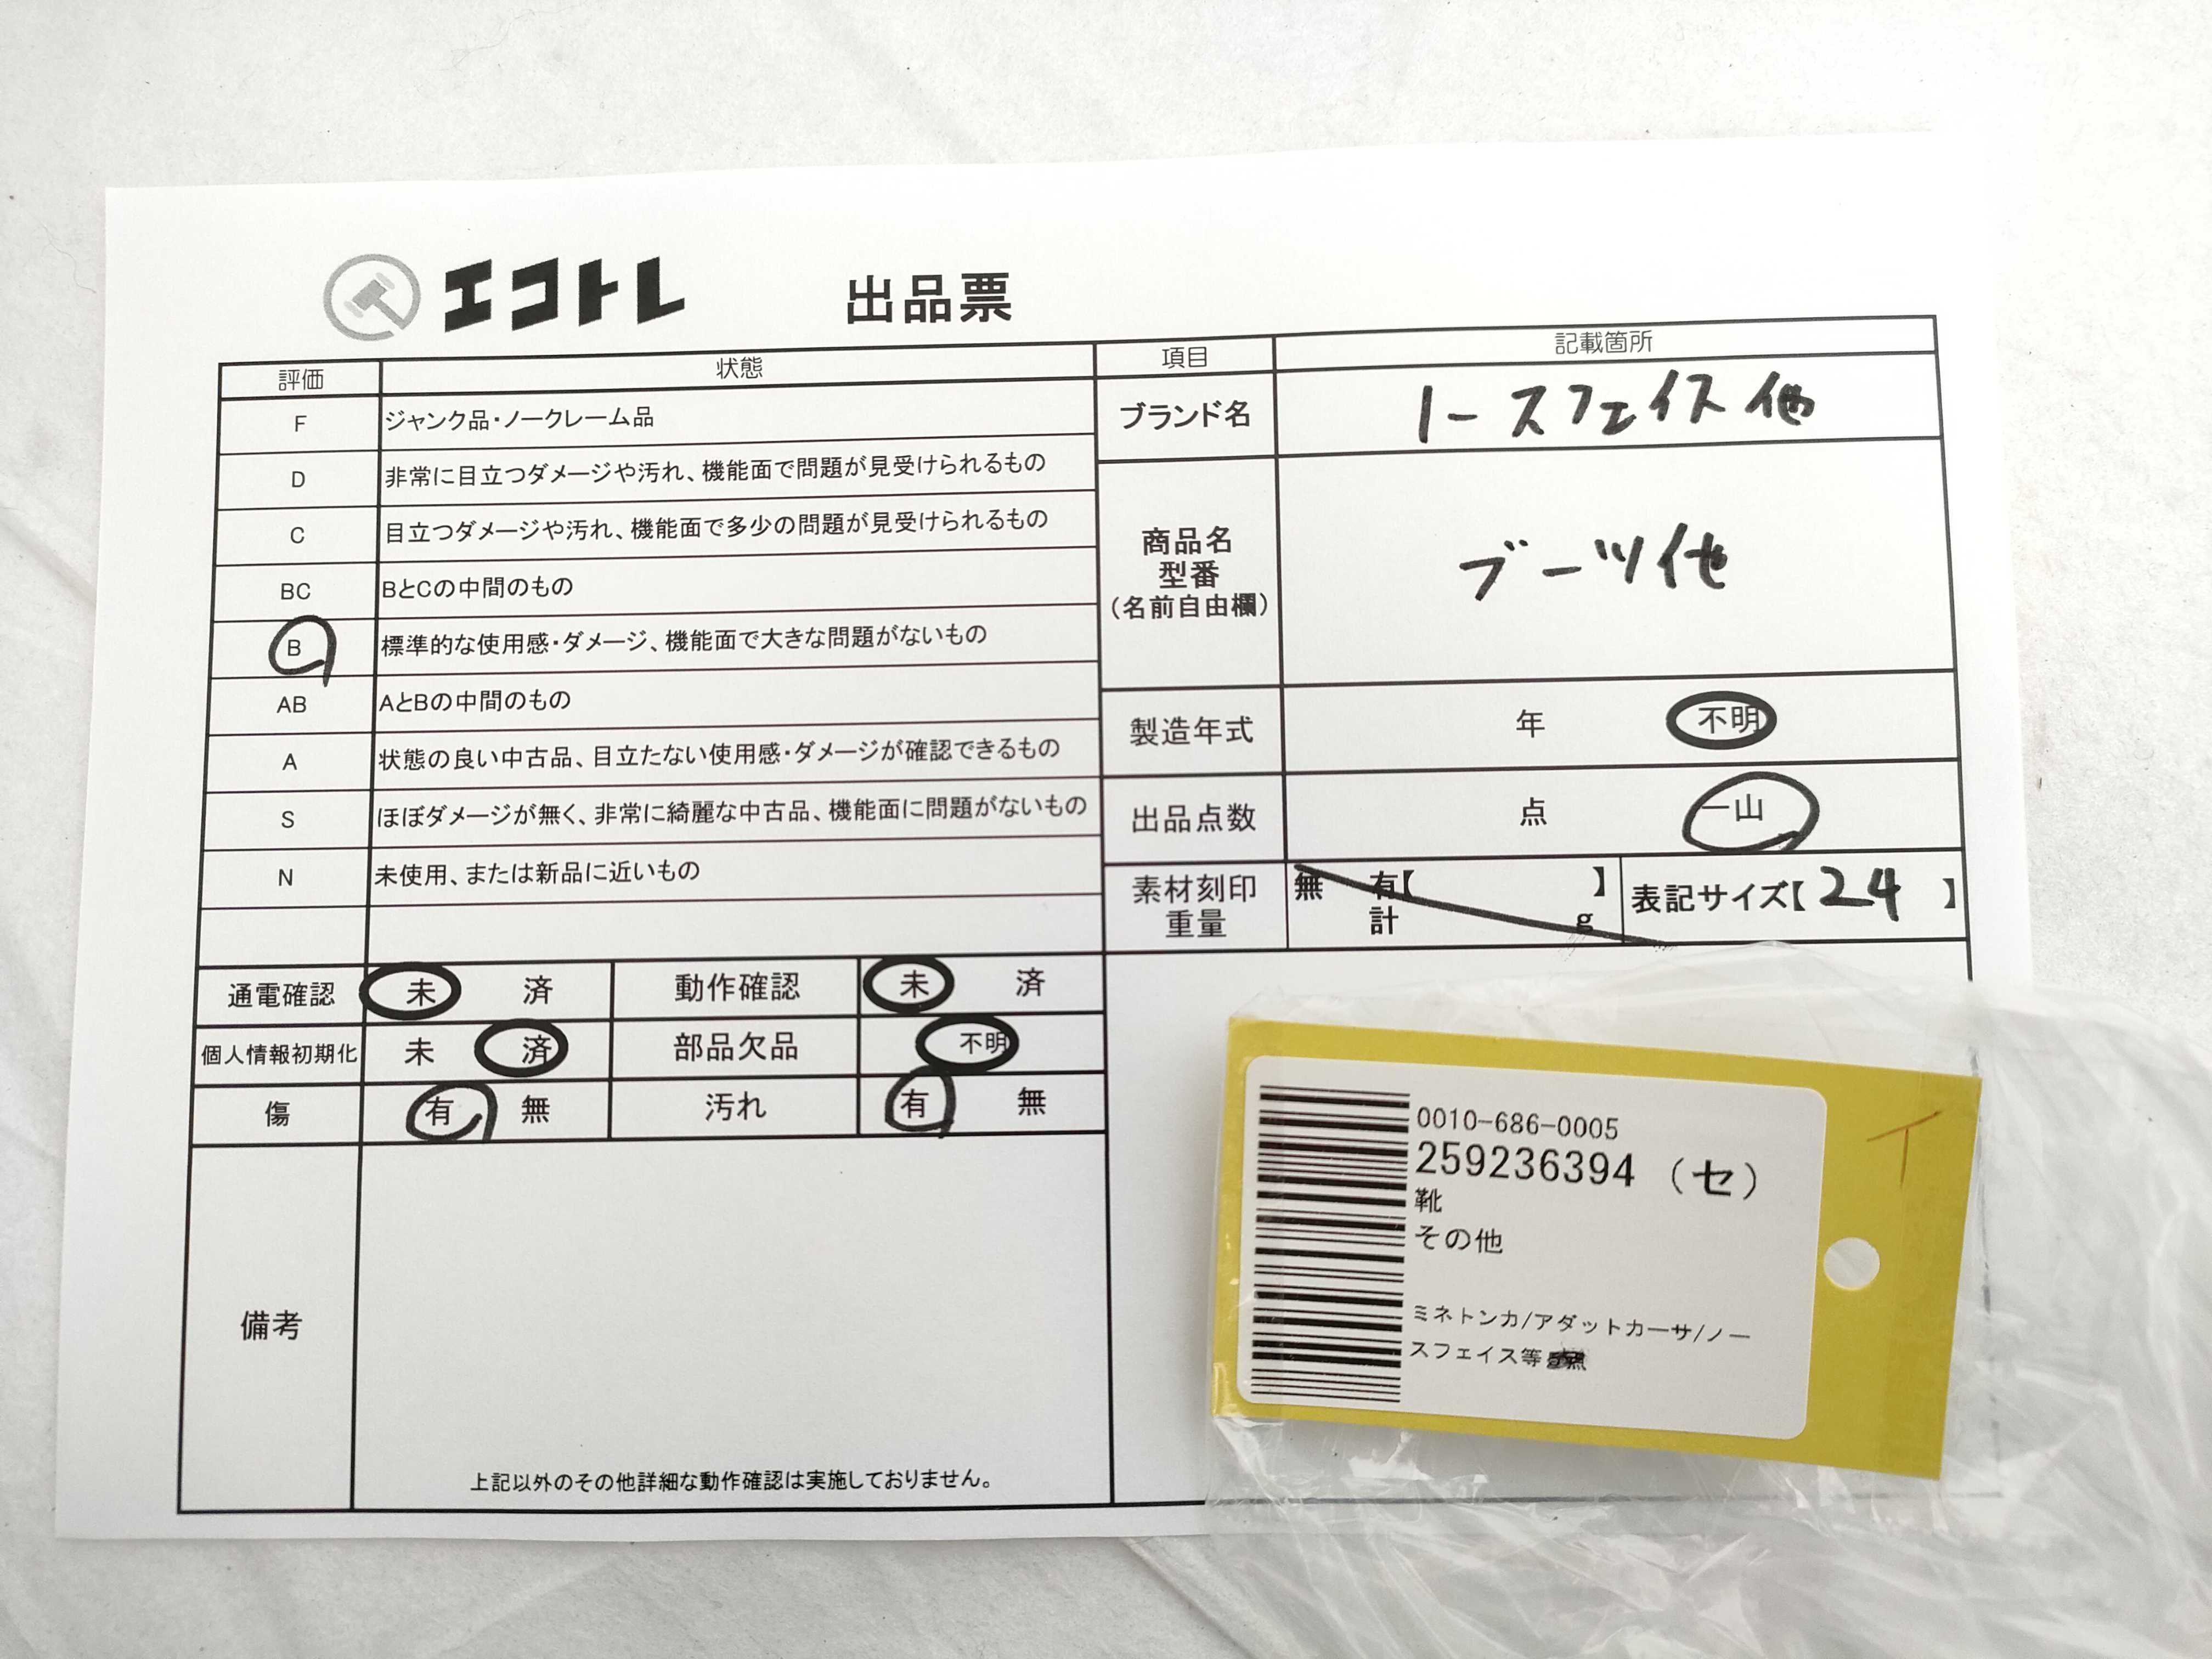 エコトレ 出品票
評価 状態 項目 記載箇所
F ジャンク品・ノークレーム品
D 非常に目立つダメージや汚れ、機能面で問題が見受けられるもの
C 目立つダメージや汚れ、機能面で多少の問題が見受けられるもの
BC BとCの中間のもの
B 標準的な使用感・ダメージ、機能面で大きな問題がないもの
AB AとBの中間のもの
A 状態の良い中古品、目立たない使用感・ダメージが確認できるもの
S ほぼダメージが無く、非常に綺麗な中古品、機能面に問題がないもの
N 未使用、または新品に近いもの
ブランド名 ノースフェイス 他
商品名
型番
(名前自由欄)
ブーツ他
製造年式 年 不明
出品点数 点 一山
素材刻印
重量
無 有【 】
計 g
表記サイズ【 24 】
通電確認 未 済 動作確認 未 済
個人情報初期化 未 済 部品欠品 不明
傷 有 無 汚れ 有 無
備考
上記以外のその他詳細な動作確認は実施しておりません。
0010-686-0005
259236394 (セ)
靴
その他
ミネトンカ/アダットカーサ/ノー
スフェイス等